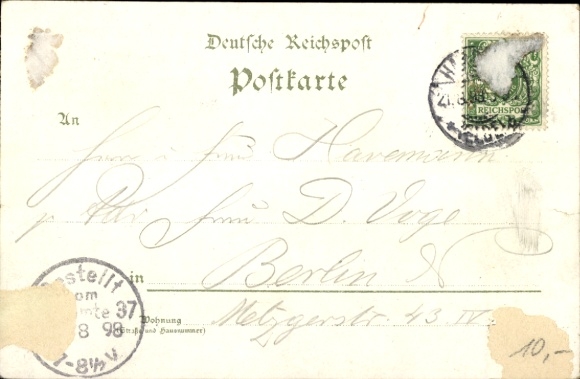 Deutsche Reichspost
Postkarte
REICHSPOST
An
Herrn u Frau Havemann
p. Adr. Frau D. Voge
in Berlin N
Wohnung
(Straße und Hausnummer)
Metzgerstr. 43 IV
Bestellt
vom
37
8 98
7-8½V
10,-